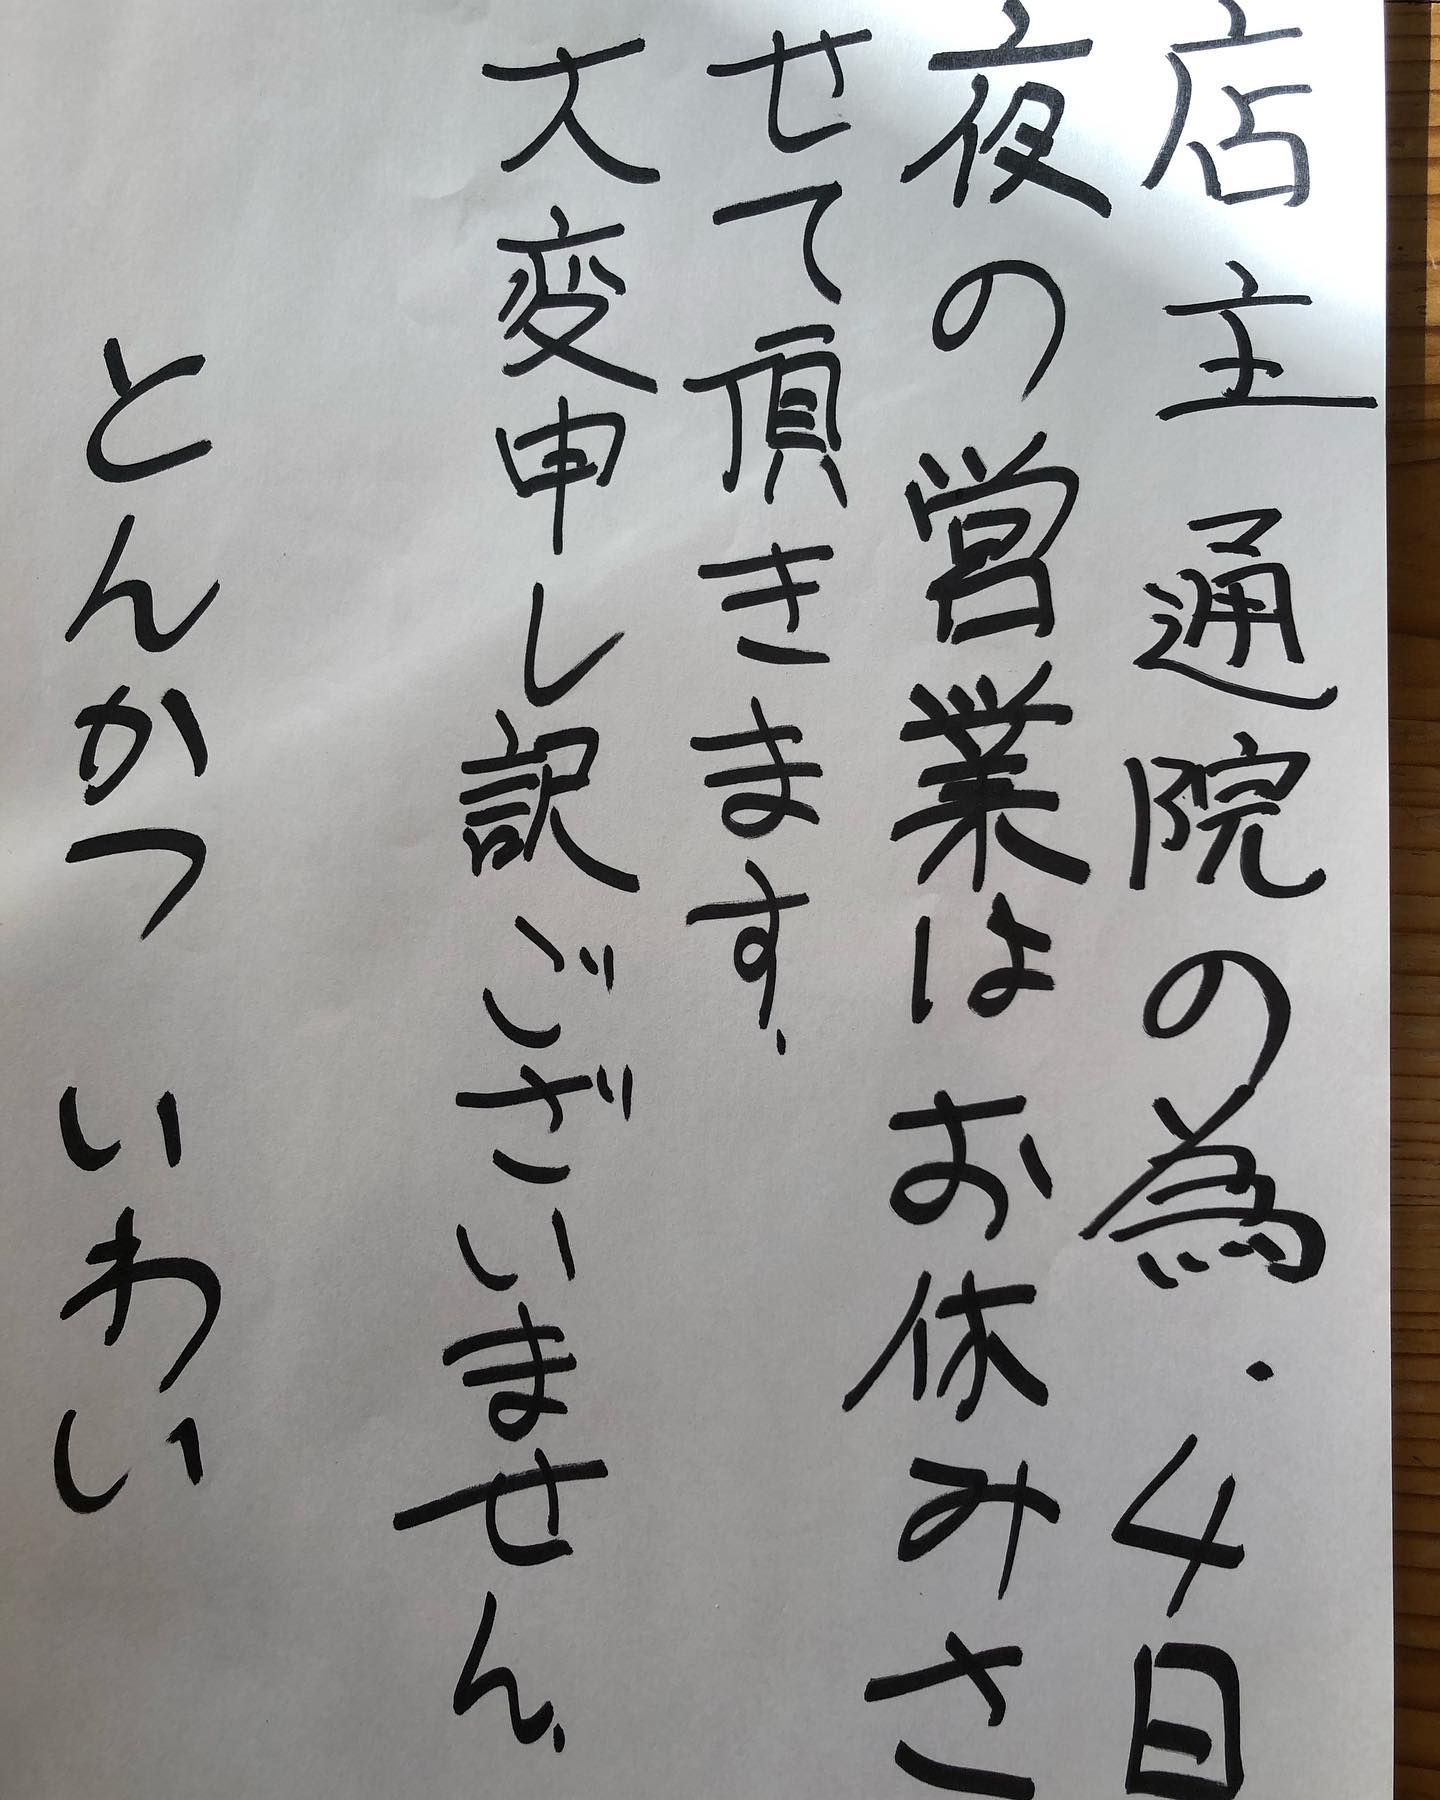 店主通院の為、4日
夜の営業はお休みさ
せて頂きます、
大変申し訳ございません、
とんかつ いわい